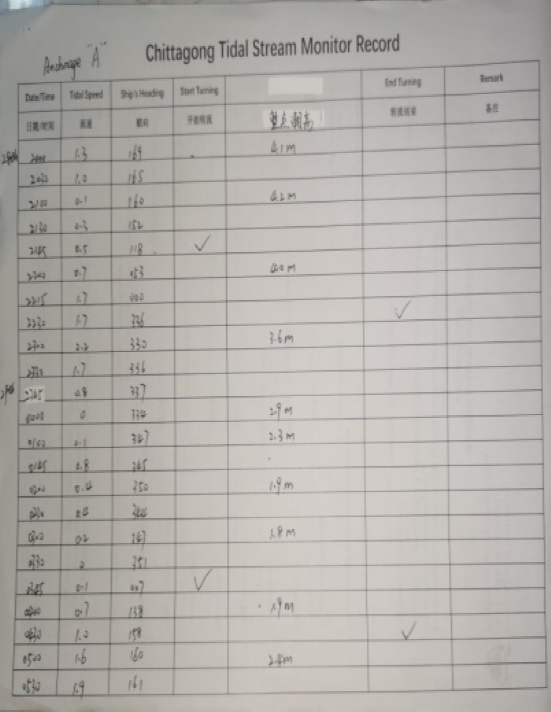 Anchorage "A"
Chittagong Tidal Stream Monitor Record
Date/Time Tidal Speed Ship's Heading Start Turning End Turning Remark
日期/时间 流速 船向 开始转流 整点潮高 转流结束 备注
2000 1.3 169 4.1m
2030 1.0 165
2100 0.1 160 4.2m
2130 0.3 152
2145 0.5 118 ✓
2200 0.7 053 4.0m
2215 1.7 000
2230 1.7 336 ✓
2300 2.2 330 3.6m
2330 1.7 336
2345 0.8 337
0000 0 334 2.9m
347 2.3m
0145 0.8 345
0200 0.4 350 1.9m
0230 344
0300 0.2 347 1.8m
0330 351
0345 0.1 007 ✓
0400 0.7 138 1.9m
0430 1.0 158 ✓
0500 1.6 160 2.4m
0530 1.9 161